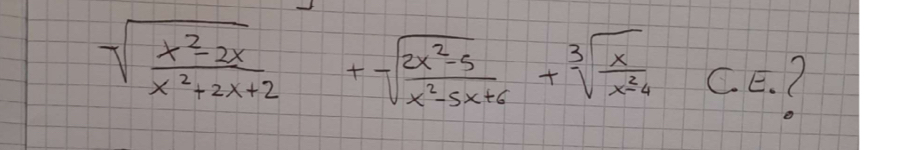 √((x²-2x)/(x²+2x+2)) + √((2x²-5)/(x²-5x+6)) + ³√(x/(x²-4)) C.E.?